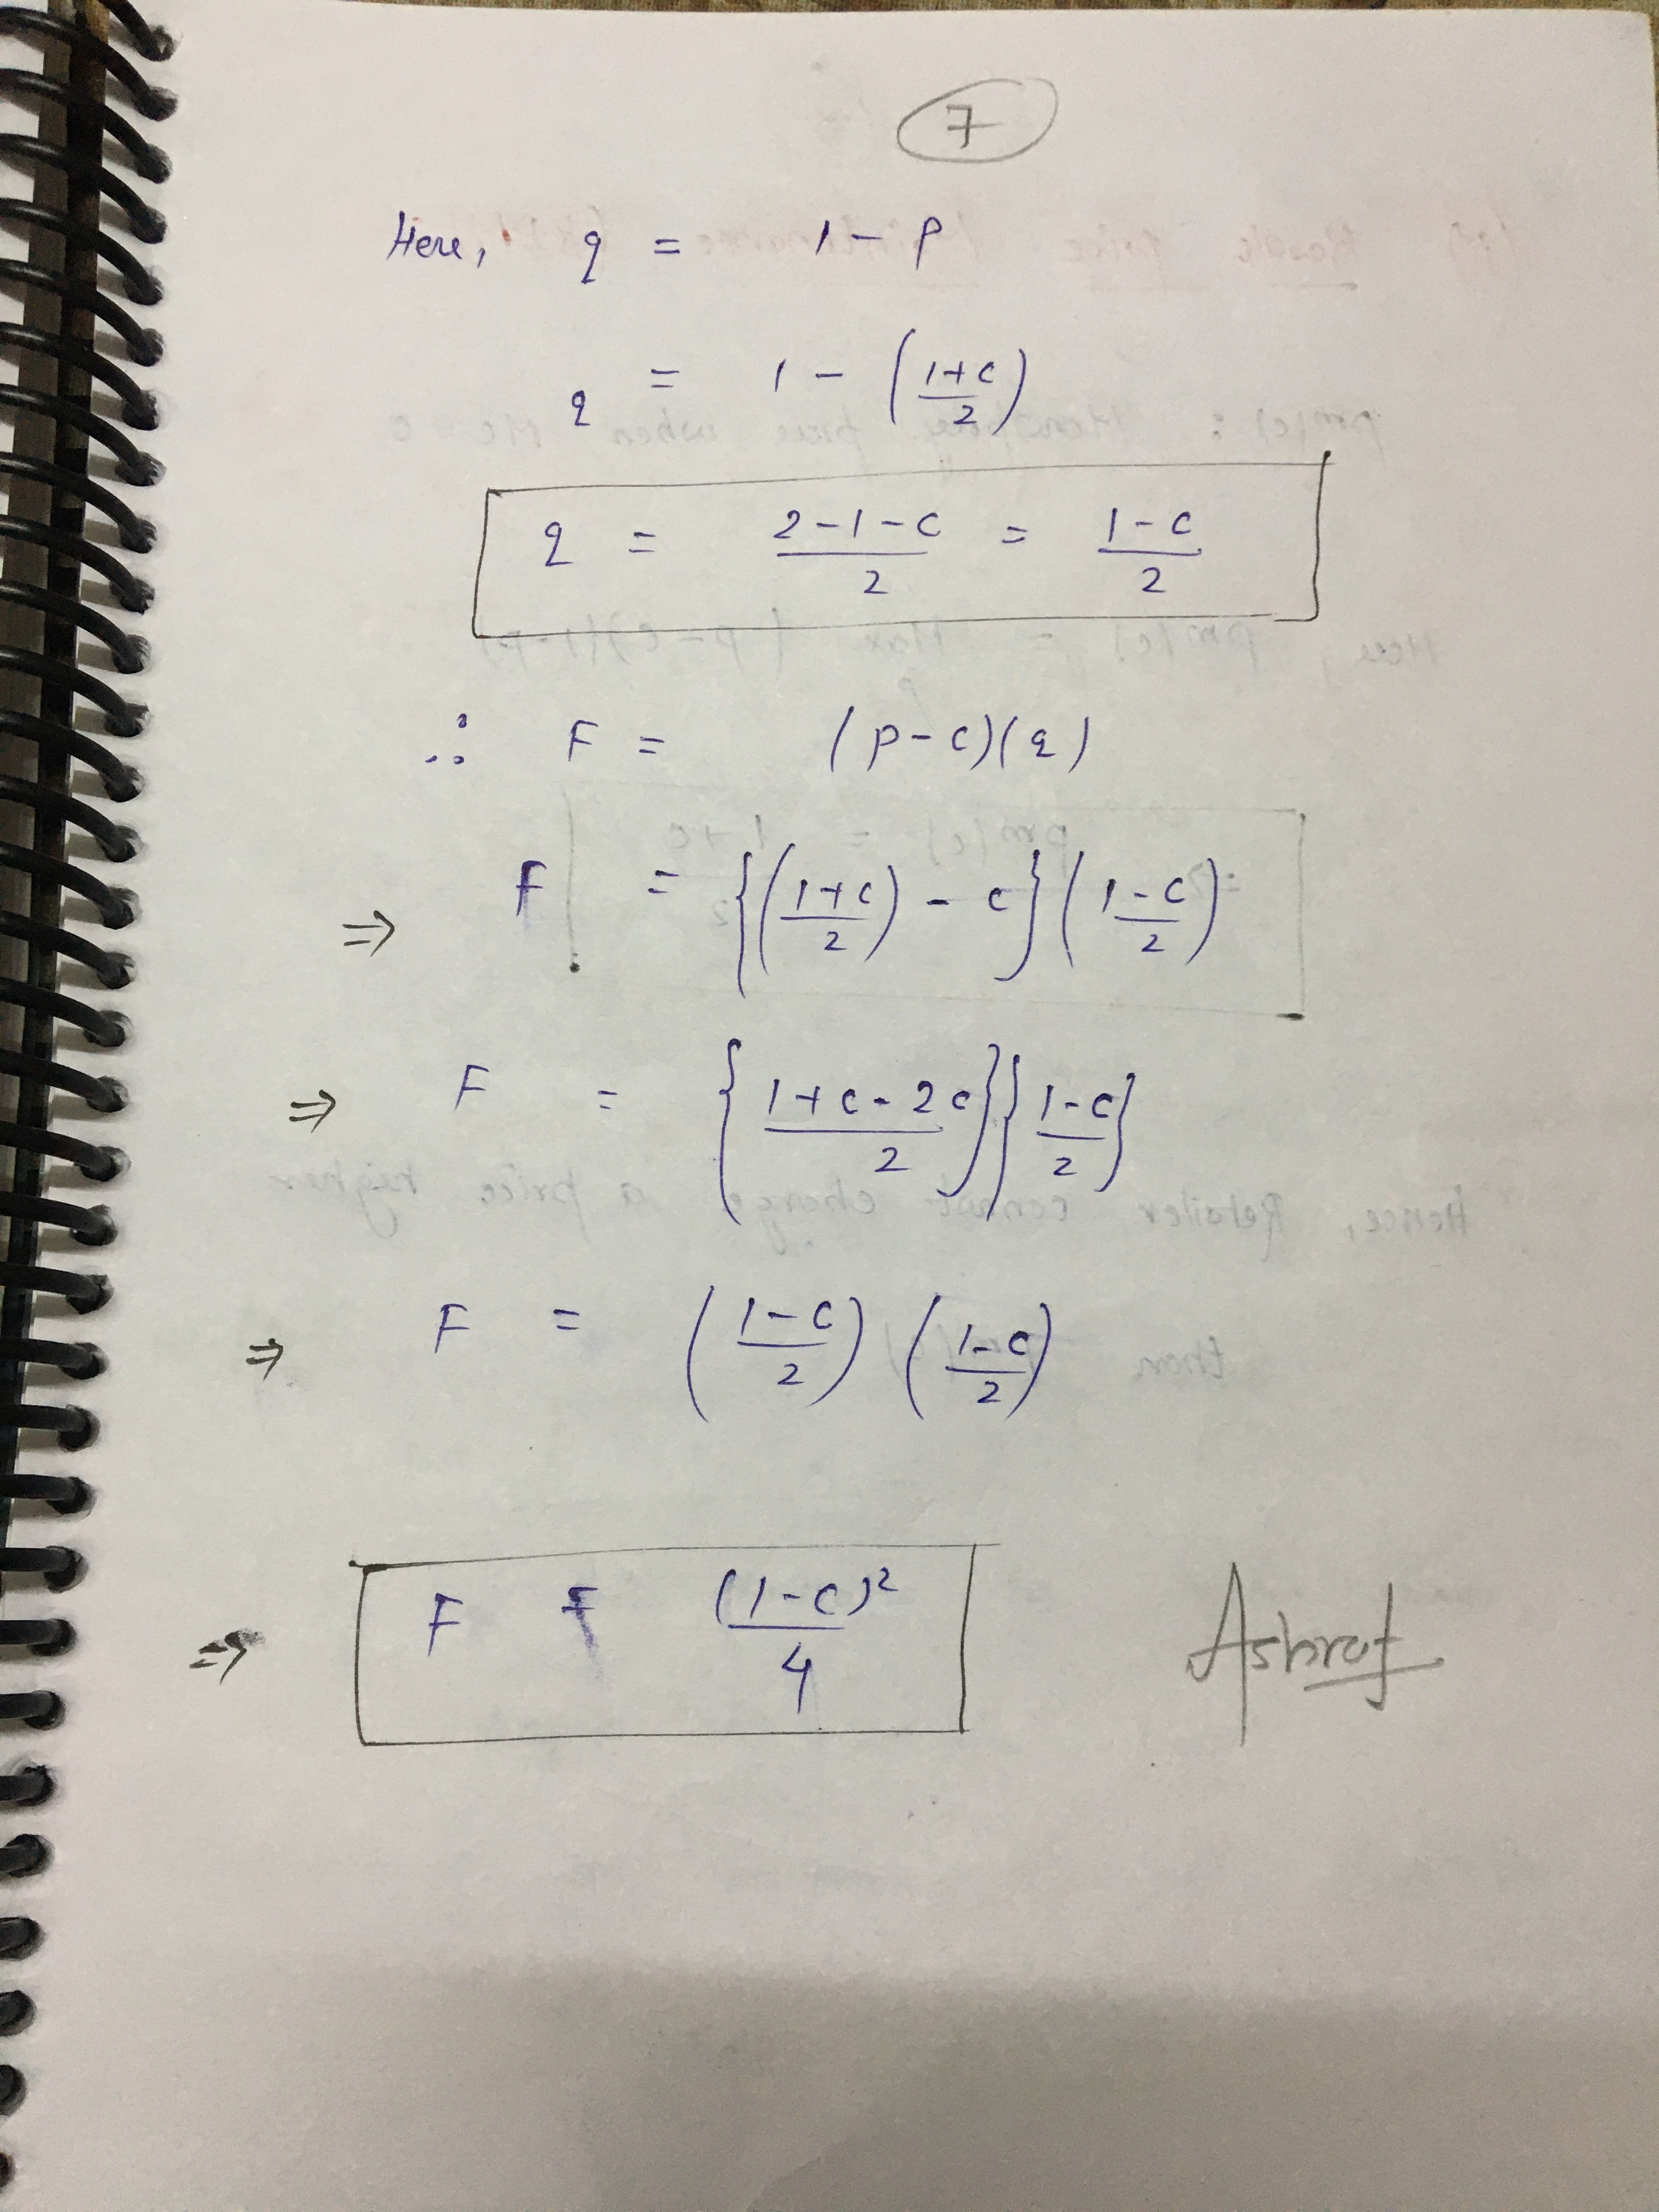 7
Here, q = 1 - p
q = 1 - (1+c/2)
q = 2-1-c/2 = 1-c/2
∴ F = (p-c)(q)
⇒ F = {(1+c/2) - c}(1-c/2)
⇒ F = {1+c-2c/2}{1-c/2}
⇒ F = (1-c/2)(1-c/2)
⇒ F F (1-c)²/4
Ashraf